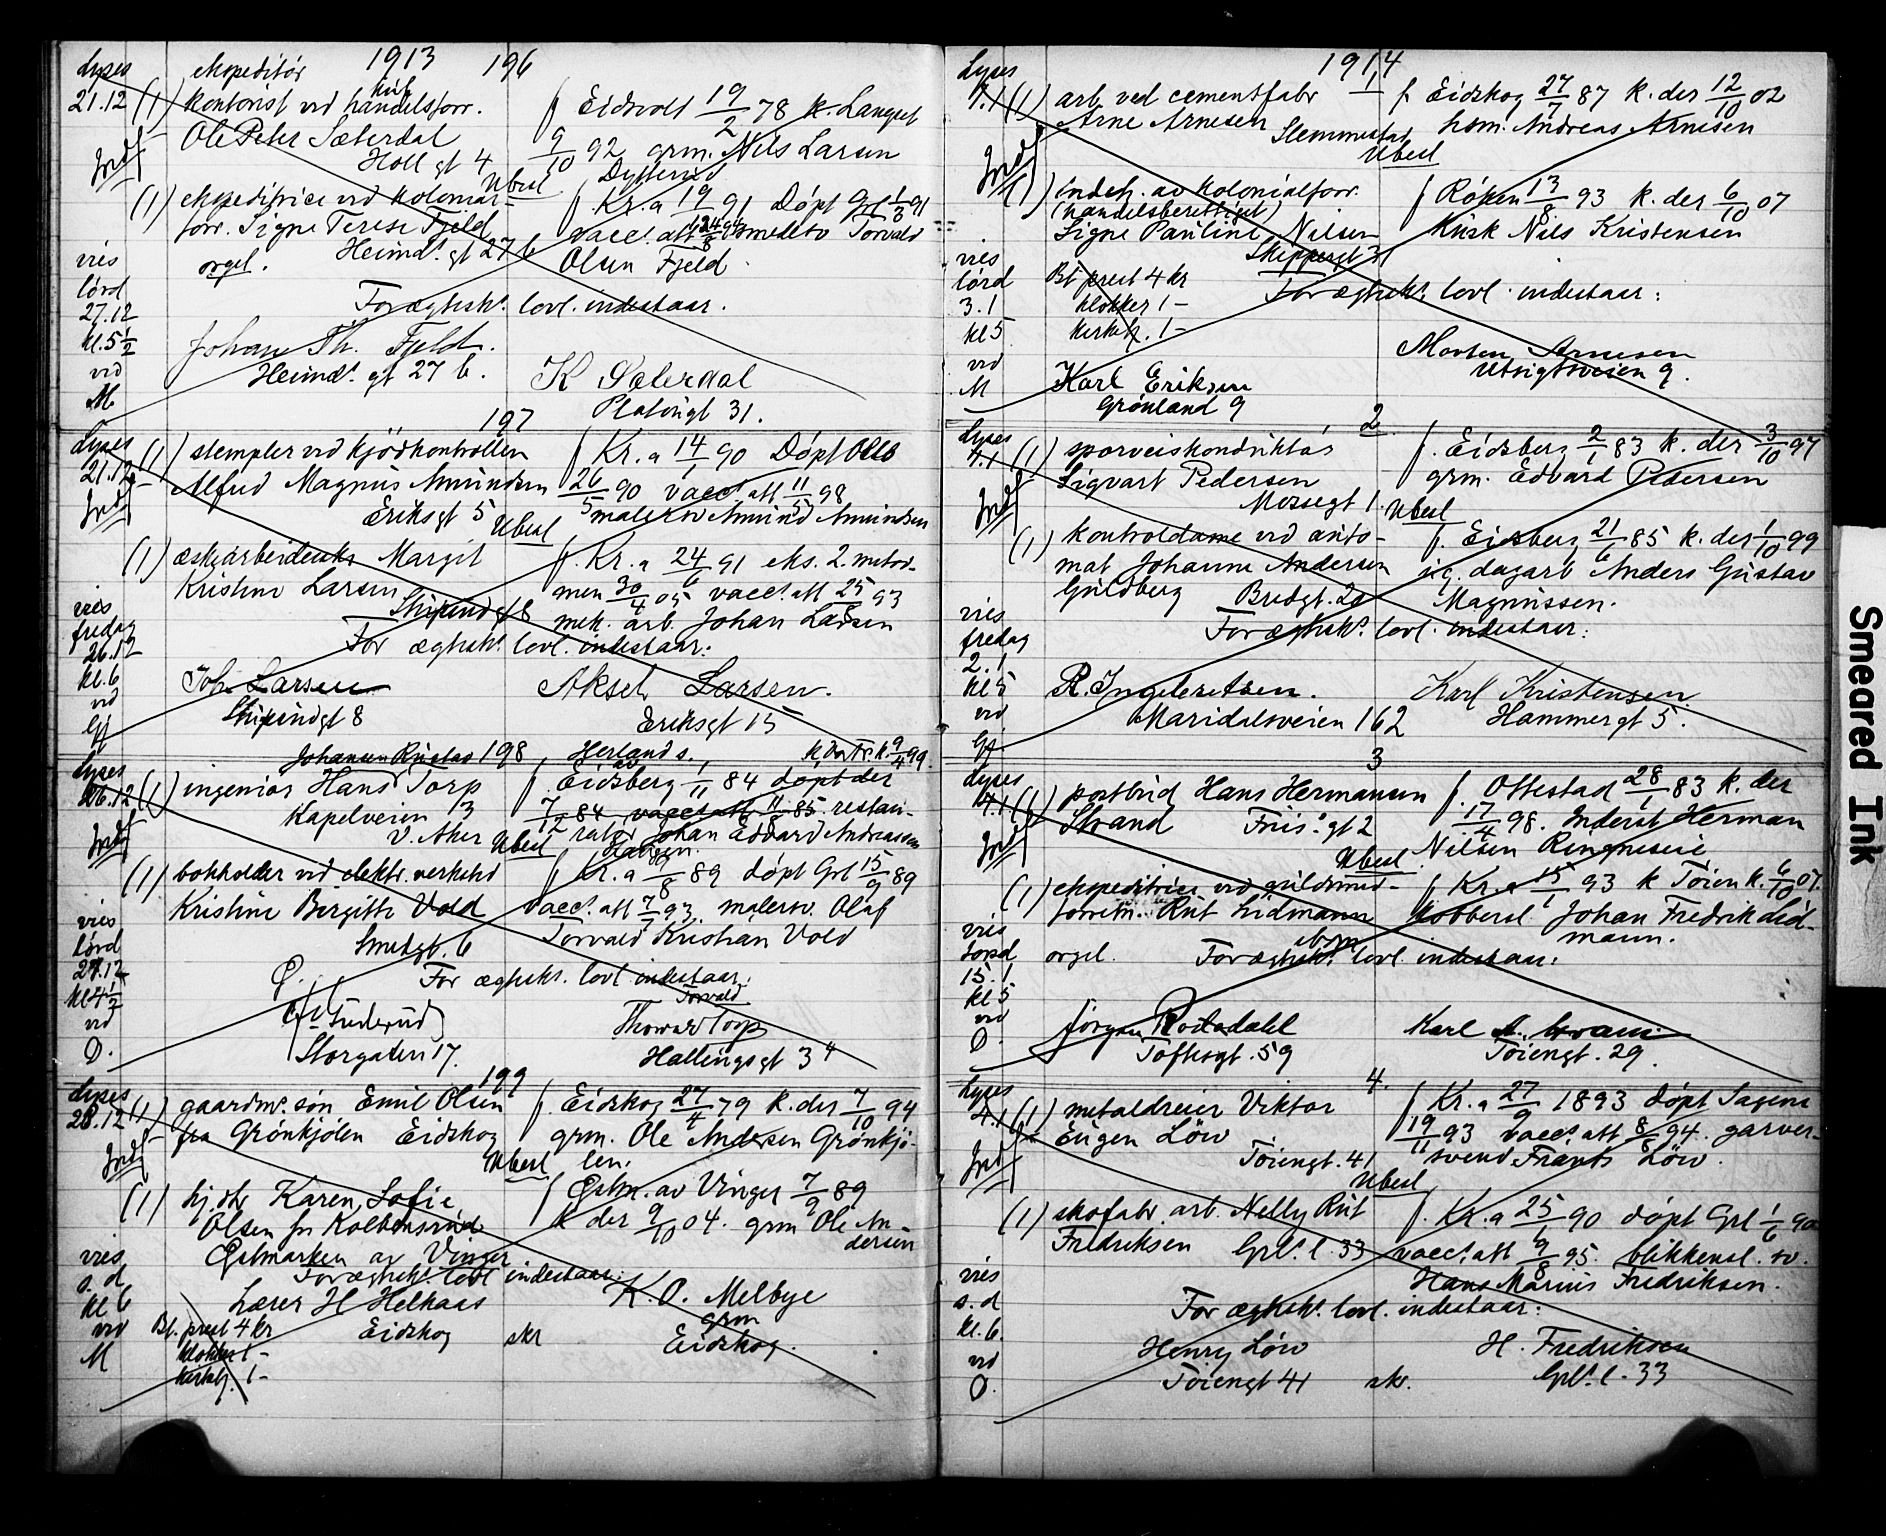 1913
196
Lyses
21.12
(1) ekspeditør
kontorist ved handelsforr.
Ole Peter Sæterdal
Holl gt 4
f Eidsvold 19/2 78 k. Langset
9/10 92 grm. Nils Larsen
Ubesl.
(1) ekspeditrice ved kolonial-
forr. Signe Terese Fjeld
Heimd. gt 27 b
orgel.
f Kr.a 19/1 91 Døpt Grl 1/3 91
smedsv Torvald
Olsen Fjeld
vies
lørd
27.12
kl. 5 1/2
vid
M
For ægtesk. lovl. indestaar.
Johan Th. Fjeld.
Heimd. gt 27 b.
K Sæterdal
Platougt 31.
197
Lyses
21.12
(1) stempler ved kjødkontrollen
Alfred Magnus Amundsen
Eriksgt 5
Ubesl
f Kr.a 14/1 90 Døpt Oslo
26/5 90 vacc. att 11/5 98
malersv Amund Amundsen
(1) æskearbeiderske Margit
Kristine Larsen
Stupendgt 8
f. Kr.a 24/6 91 eks. 2. metod-
men 30/4 05 vacc. att 25/8 93
mek. arb. Johan Larsen
vies
fredag
26.12
kl. 6
vd
Gj
For ægtesk. lovl. indestaar:
Joh. Larsen
Stupendgt 8
Aksel Larsen.
Eriksgt 15
Johansen Rustad 198 Herland s.
Lyses
26.12
(1) ingeniør Hans Torp
Kapelveien 13
V. Aker
Ubesl
f. Eidsberg 1/11 84 døpt der
7/12 84 vacc. att 11/8 85. restau-
ratør Johan Edvard Andreassen
(1) bokholder ved elektr. verksted
Kristine Birgitte Vold
Smedgt. 6
f Kr.a 8/8 89 døpt Grl 15/9 89
vacc. att 7/7 93. malersv. Olaf
Torvald Kristian Vold
vies
lørd
27.12
kl 4 1/2
vd
O.
For ægtesk. lovl. indestaar:
Storgaten 17.
Thorvald Torp
Hallingsgt 3
199
Lyses
28.12
(1) gaardbr. søn Emil Olsen
fra Grønkjølen Eidskog
f. Eidskog 27/4 79 k. der 7/10 94
grm. Ole Andersen Grønkjø-
len.
Ubesl
(1) hj. dtr Karen Sofie
Olsen fra Kolbensrud
Østmarken av Vinger
f Østm. av Vinger 7/9 89
k der 9/10 04. grm Ole An-
dersen
vies
s. d
kl 6
vid
M
For ægtesk. lovl indestaar:
Lærer H Helkaas
Eidskog
skr
K. O. Melbye
grm
Eidskog.
Bt. prest 4 kr
klokker 1 -
kirketj. 1 -
1914
1
Lyses
4.1
(1) arb. ved cementfabr
Arne Arnesen
Slemmestad
f. Eidskog 27/7 87 k. der 12/10 02
hsm. Andreas Arnesen
Ubesl
(1) Indeh. av kolonialforr.
(handelsberettiget)
Signe Pauline Nilsen
Skippergt 31
f Røken 13/8 93 k. der 6/10 07
Kusk Nils Kristensen
vies
lørd
3.1
kl 5
vid
M
Bt prest 4 kr
klokker 1 -
kirketj. 1 -
For ægtesk. lovl. indestaar:
Karl Eriksen
Grønland 9
Morten Arnesen
Utsigtsveien 9.
2
Lyses
4.1
(1) sporveiskonduktør
Sigvart Pedersen
Mossegt 1.
Ubesl
f. Eidsberg 2/1 83 k. der 3/10 97
grm. Edvard Pedersen
(1) kontroldame ved auto-
mat Johanne Andersen
Guldberg Bredgt. 20
f. Eidsberg 21/6 85 k. der 1/10 99
jc. dagarb Anders Gustav
Magnussen.
vies
fredag
2.1
kl 5
vid
Gj
For ægtesk. lovl. indestaar:
R. Ingebretsen.
Maridalsveien 162
Karl Kristensen
Hammergt 5.
3
Lyses
4.1
(1) postbud Hans Hermansen
Strand Friis. gt 2
f. Ottestad 28/1 83 k. der
17/4 98. Inderst Herman
Nilsen Ringneseie
Ubesl.
(1) ekspeditrice ved guldsmed-
forretn. Rut Lidmann
f Kr.a 15/1 93 k Tøien k. 6/10 07.
Kobbersl. Johan Fredrik Lid-
mann.
vies
torsd
15.1
kl 5
vid
O.
orgel.
For ægtesk. lovl. indestaar:
Jørgen
Toftesgt. 59
Karl
Tøiengt. 29
4.
Lyses
4.1
(1) metaldreier Viktor
Eugen Löw
Tøiengt. 41
f Kr.a 27/9 1893 døpt Sagene
19/11 93 vacc. att 8/8 94. garver-
svend Frants Löw.
Ubesl
(1) skofabr. arb. Nelly Rut
Fredriksen Grl. l. 33
f. Kr.a 25/1 90 døpt Grl 1/6 90
vacc. att 9/8 95. blikkensl. sv.
Hans Marius Fredriksen.
vies
s. d
kl. 6
vid
O.
For ægtesk. lovl. indestaar:
Henry Löw
Tøiengt 41
skr.
H. Fredriksen
Grl. l. 33
Smeared Ink